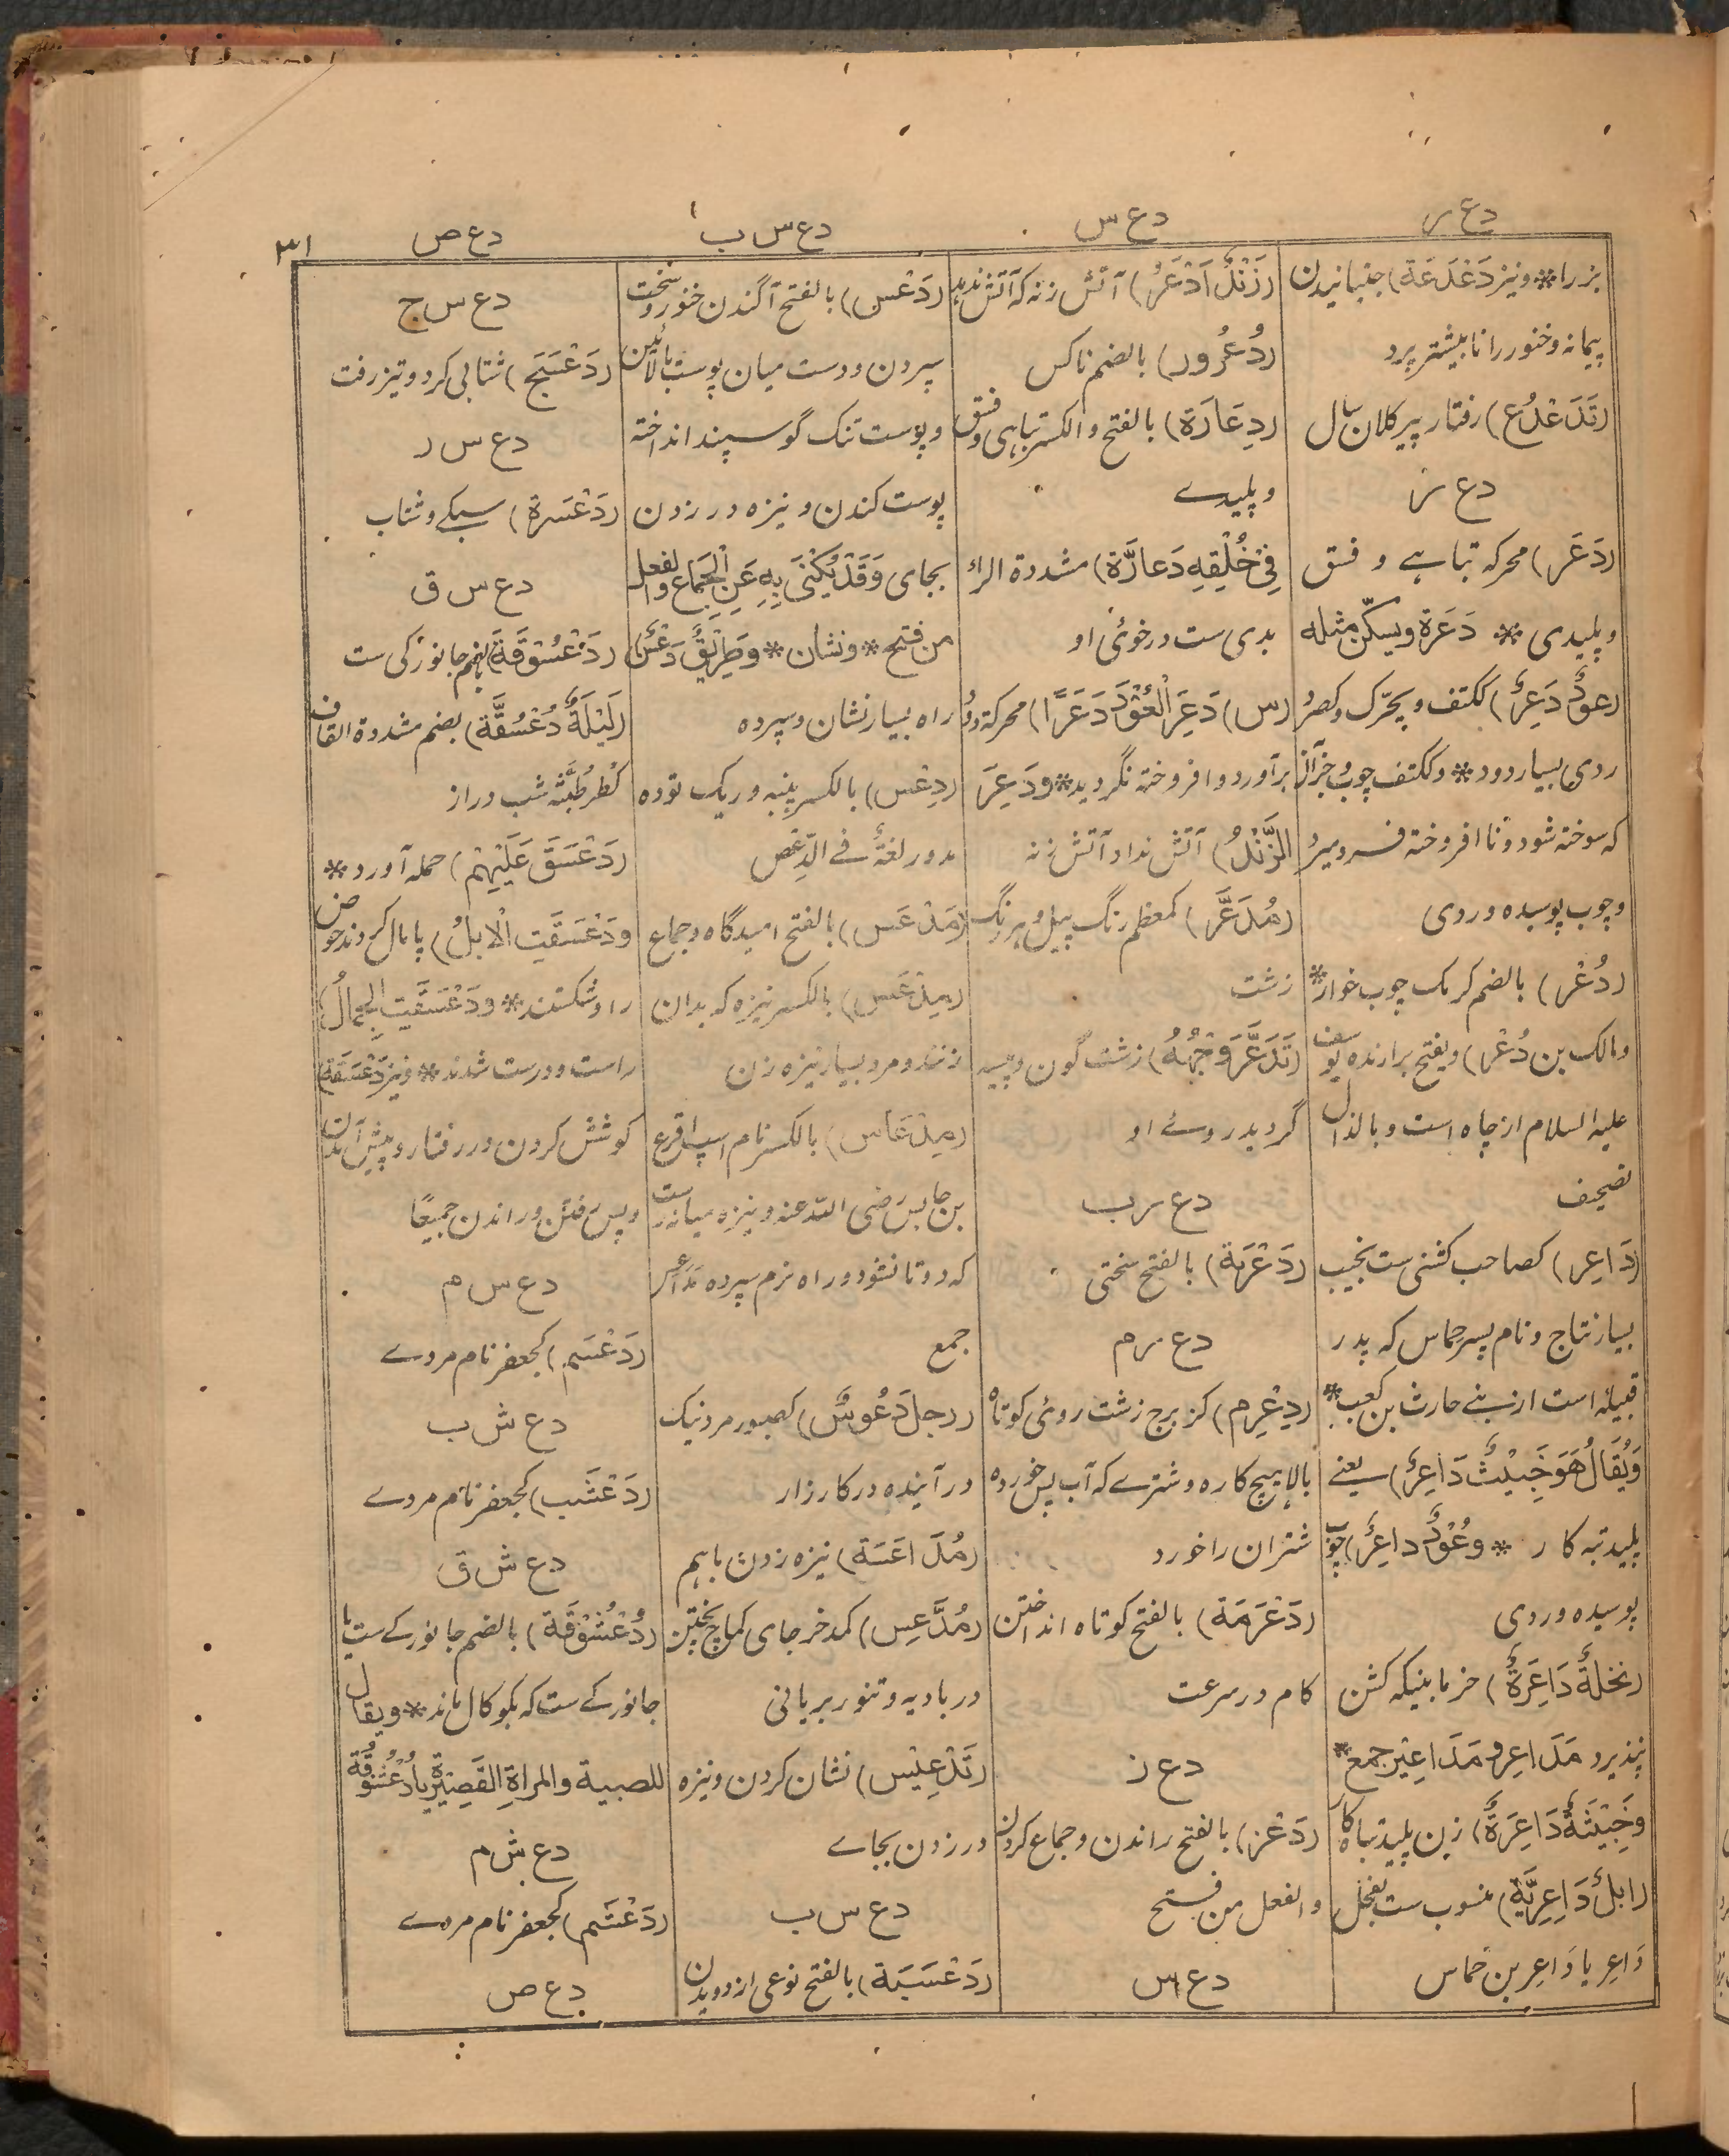 دع ر
دع س
دع س ب
دع ص
۳۱
بز را * و نیز دَعْدَعَة) جنبانیدن
پیمانه و خنور را تا بیشتر پرد
(تَدَعْدُع) رفتار پیر کلان سال
دع ر
(دَعَر) محرکه تباہے و فسق
و پلیدی * دَعَرَة ویسکّن مثله
(عودٌ دَعِرٌ) ککتف و یحرّک و کصرد
ردی بسیار دود * و ککتف چوب و جز آن
که سوخته شود و نا افروخته فسرده میرد
و چوب پوسیده و ردی
(دُعْر) بالضم کرمک چوب خوار *
و مالک بن دُعْر) ویفتح برارنده یوسف
علیه السلام از چاه است و بالذال
تصحیف
(دَاعِر) کصاحب کشنی ست نجیب
بسیار نتاج و نام پسر حماس که پدر
قبیله است از بنے حارث بن کعب *
وَیُقَالُ هُوَ خَبِیْثٌ دَاعِرٌ) یعنے
پلید تبه کار * وعُوْدٌ داعِرٌ) چوب
پوسیده و ردی
(نخلةٌ دَاعِرَةٌ) خرما بنیکه کشن
نپذیرد مَدَاعِر و مَدَاعِیْر جمع *
وخَبِیْثَةٌ دَاعِرَةٌ) زن پلید تباه کار
(ابلٌ دَاعِرِیَّةٌ) منسوب ست بفحل
دَاعِر یا دَاعِر بن حماس
(زَنْدٌ اَدْعَرُ) آتش زنه که آتش ندهد
(دُعْرُور) بالضم ناکس
(دِعَارَة) بالفتح و الکسر تباہی و فسق
و پلیدے
فِیْ خُلْقِهِ دَعارَّة) مشددة الراء
بدی ست در خوئی او
(س) دَعِرَ الْعُوْدُ دَعَرًا) محرکة دود
برآورد و افروخته نگردید * ودَعِرَ
الزَّنْدُ) آتش نداد آتش زنه
(مُدَعَّر) کمعظم رنگ پیل و هر رنگ
زشت
(تَدَعَّرَ وَجْهُهُ) زشت گون و پیسه
گردید روئے او
دع ر ب
(دَعْرَبَة) بالفتح سختی
دع ر م
(دِعْرِم) کزبرج زشت روئی کوتاه
بالا هیچکاره و شترے که آب پس خورده
شتران را خورد
(دَعْرَمَة) بالفتح کوتاه انداختن
کام در سرعت
دع ز
(دَعْز) بالفتح راندن و جماع کردن
والفعل من فتح
دع س
(دَعْس) بالفتح آگندن خنور و سخت
سپردن و دست میان پوست بالائین
و پوست تنک گوسپند انداخته
پوست کندن و نیزه در زدن
بجای وَقَدْ یُکْنٰی بِهِ عَنِ الْجِمَاعِ والفعل
من فتح * ونشان * وطَرِیْقٌ دَعْسٌ
راه بسیار نشان و سپرده
(دِعْس) بالکسر پنبه و ریگ توده
مدور لغةٌ فے الدِّعْص
(مَدْعَس) بالفتح امیدگاه و جماع
(مِدْعَس) بالکسر نیزه که بدان
زنند و مرد بسیار نیزه زن
(مِدْعَاس) بالکسر نام اسپ اقرع
بن حابس رضی اللّه عنه و نیزه میانه راست
که دوتا نشود و راه نرم سپرده مَدَاعِس
جمع
(رجلٌ دَعُوسٌ) کصبور مرد نیک
در آینده در کارزار
(مُدَاعَسَة) نیزه زدن باهم
(مُدَّعِس) کمدخر جای کماج پختن
در بادیه و تنور بریانی
(تَدْعِیْس) نشان کردن و نیزه
در زدن بجاے
دع س ب
(دَعْسَبَة) بالفتح نوعی از دویدن
دع س ج
(دَعْسَجَ) شتابی کرد و تیز رفت
دع س ر
(دَعْسَرَة) سبکے و شتاب
دع س ق
(دُعْسُوْقَة) بالضم جانورکی ست
(لَیْلَةٌ دُعْسُقَّة) بضم مشددة القاف
کطُرطُبَّة شب دراز
(دَعْسَقَ عَلَیْهِمْ) حمله آورد *
ودَعْسَقَتِ الْاِبِلُ) پامال کردند حوض
را و شکستند * ودَعْسَقَتِ الجِمالُ)
راست و درست شدند * و نیز دَعْسَقَة)
کوشش کردن در رفتار و پیش آمدن
و پس رفتن و راندن جمیعًا
دع س م
(دَعْسَم) کجعفر نام مردے
دع ش ب
(دَعْشَب) کجعفر نام مردے
دع ش ق
(دُعْشُوْقَة) بالضم جانورکے ست یا
جانورکے ست که بکوکال ماند * ویقال
للصبیة والمراةِ القَصِیْرَةِ یا دُعْشُوْقَة
دع ش م
(دَعْشَم) کجعفر نام مردے
دع ص